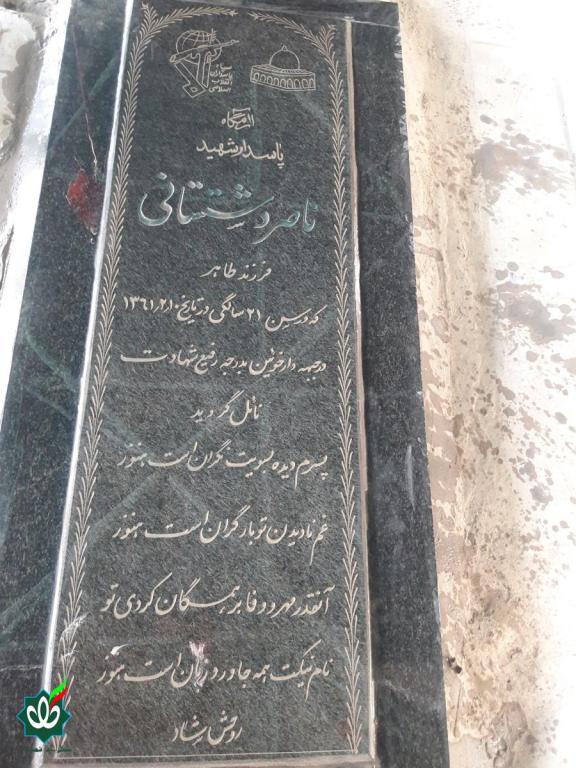 سپاه پاسداران انقلاب اسلامی
آرامگاه
پاسدار شهید
ناصر دشتستانی
فرزند طاهر
که در سن ۲۱ سالگی در تاریخ ۱۳۶۱٫۲٫۱۰
در جبهه دارخوین بدرجه رفیع شهادت
نائل گردید
پسرم دیده بسویت نگران است هنوز
غم نادیدن تو بار گران است هنوز
آنقدر مهر و وفا بر همگان کردی تو
نام نیکت همه جا ورد زبان است هنوز
روحش شاد